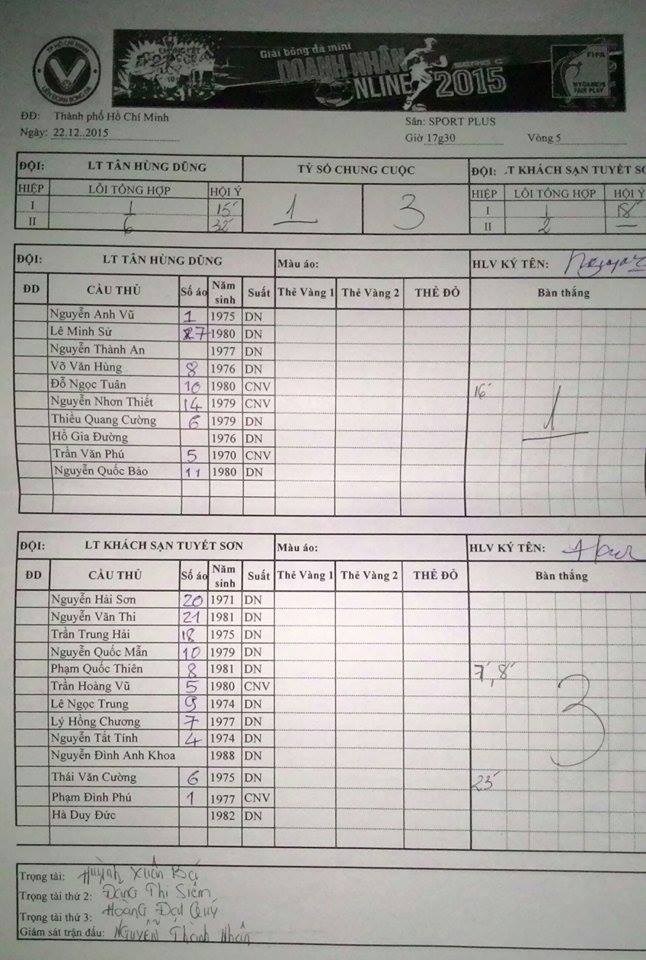 TP HỒ CHÍ MINH
LIÊN ĐOÀN BÓNG ĐÁ
Giải bóng đá mini
DOANH NHÂN
NLINE 2015
FIFA
MY GAME IS
FAIR PLAY
ĐĐ: Thành phố Hồ Chí Minh
Sân: SPORT PLUS
Ngày: 22.12..2015
Giờ 17g30 Vòng 5
ĐỘI: LT TÂN HÙNG DŨNG TỶ SỐ CHUNG CUỘC ĐỘI: LT KHÁCH SẠN TUYẾT SƠ
HIỆP LỖI TỔNG HỢP HỘI Ý 1 3 HIỆP LỖI TỔNG HỢP HỘI Ý
I 1 15' I 1 18'
II 6 32' II 2 —
ĐỘI: LT TÂN HÙNG DŨNG Màu áo: HLV KÝ TÊN:
ĐD CẦU THỦ Số áo Năm sinh Suất Thẻ Vàng 1 Thẻ Vàng 2 THẺ ĐỎ Bàn thắng
Nguyễn Anh Vũ 1 1975 DN
Lê Minh Sử 27 1980 DN
Nguyễn Thành An 1977 DN
Võ Văn Hùng 8 1976 DN
Đỗ Ngọc Tuân 10 1980 CNV 16'
Nguyễn Nhơn Thiết 14 1979 CNV 1
Thiều Quang Cường 6 1979 DN
Hồ Gia Đường 1976 DN
Trần Văn Phú 5 1970 CNV
Nguyễn Quốc Bảo 11 1980 DN
ĐỘI: LT KHÁCH SẠN TUYẾT SƠN Màu áo: HLV KÝ TÊN:
ĐD CẦU THỦ Số áo Năm sinh Suất Thẻ Vàng 1 Thẻ Vàng 2 THẺ ĐỎ Bàn thắng
Nguyễn Hải Sơn 20 1971 DN
Nguyễn Văn Thi 21 1981 DN
Trần Trung Hải 18 1975 DN
Nguyễn Quốc Mẫn 10 1979 DN
Phạm Quốc Thiên 8 1981 DN 7', 8'
Trần Hoàng Vũ 5 1980 CNV
Lê Ngọc Trung 9 1974 DN 3
Lý Hồng Chương 7 1977 DN
Nguyễn Tất Tính 4 1974 DN
Nguyễn Đình Anh Khoa 1988 DN
Thái Văn Cường 6 1975 DN 23'
Phạm Đình Phú 1 1977 CNV
Hà Duy Đức 1982 DN
Trọng tài: Huỳnh Xuân Bá
Trọng tài thứ 2: Đặng Thị Siêm
Trọng tài thứ 3: Hoàng Đạt Quý
Giám sát trận đấu: Nguyễn Thành Nhân